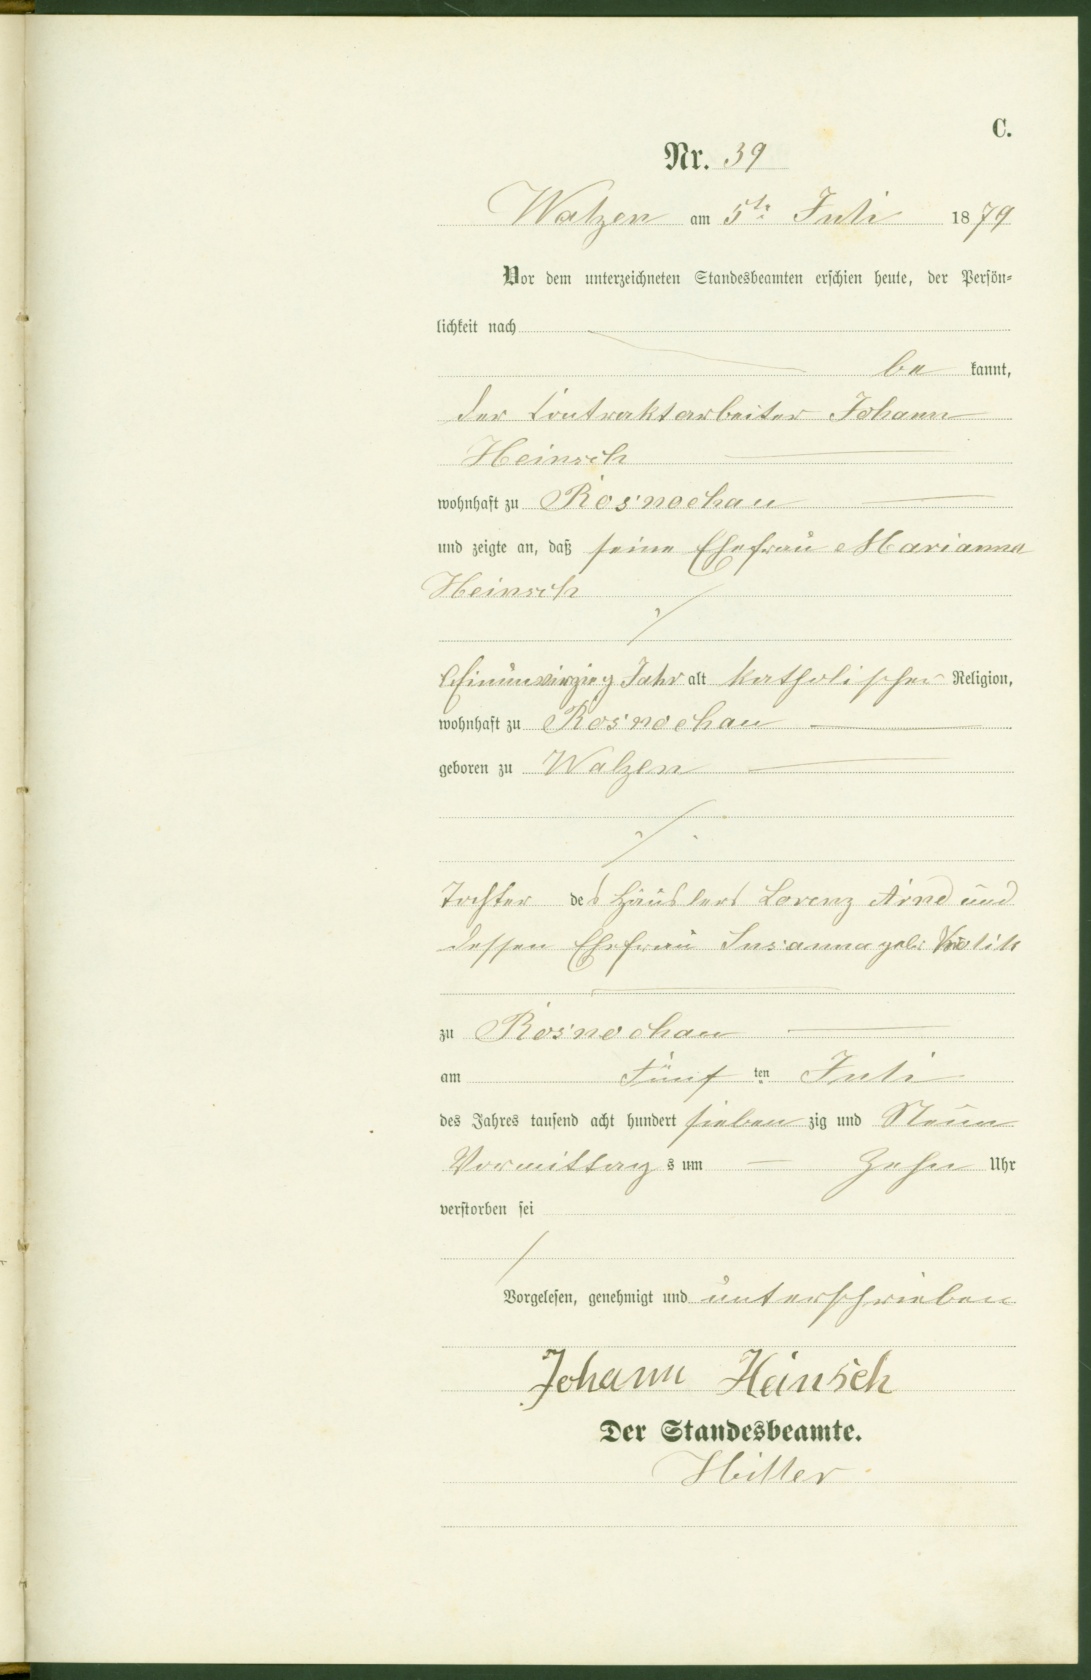 C.
Nr. 39
Walzen am 5ten Juli 1879
Vor dem unterzeichneten Standesbeamten erschien heute, der Persön-
lichkeit nach
be kannt,
der Contraktarbeiter Johann
Heinsch
wohnhaft zu Rosnochau
und zeigte an, daß seine Ehefrau Marianna
Heinsch
Jahr alt katholischer Religion,
wohnhaft zu Rosnochau
geboren zu Walzen
Tochter des Häuslers Lorenz und
dessen Ehefrau Susanna geb:
zu Rosnochau
am Fünf ten Juli
des Jahres tausend acht hundert sieben zig und Neun
Vormittag s um Zehn Uhr
verstorben sei
Vorgelesen, genehmigt und unterschrieben
Johann Heinsch
Der Standesbeamte.